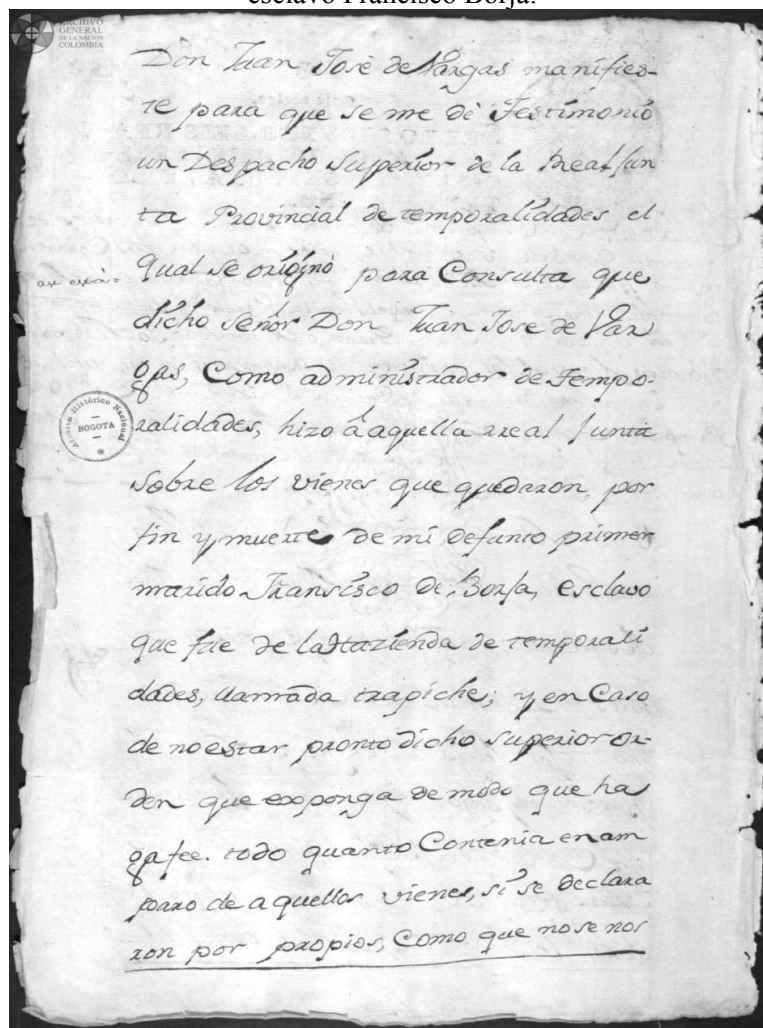 esclavo Francisco Borja.
ARCHIVO
GENERAL
DE LA NACIÓN
COLOMBIA
Don Juan José de Vargas manifies-
te para que se me dè Testimonio
un Despacho Superior de la Real Jun
ta Provincial de temporalidades el
qual se originò para Consulta que
dicho señor Don Juan Jose de Var
gas, Como administrador de Tempo-
ralidades, hizo â aquella rreal Junta
sobre los vienes que quedaron, por
fin y muerte de mi defunto primer
marido Fransisco de Borja, esclavo
que fue de la Hazienda de temporali
dades, llamada trapiche; y en Caso
de no estar pronto dicho superior or-
den que exponga de modo que ha
ga fee. todo quanto Contenia en am
paro de aquellos vienes, si se declara
ron por propios, Como que no se nos
Archivo Histórico Nacional
BOGOTA